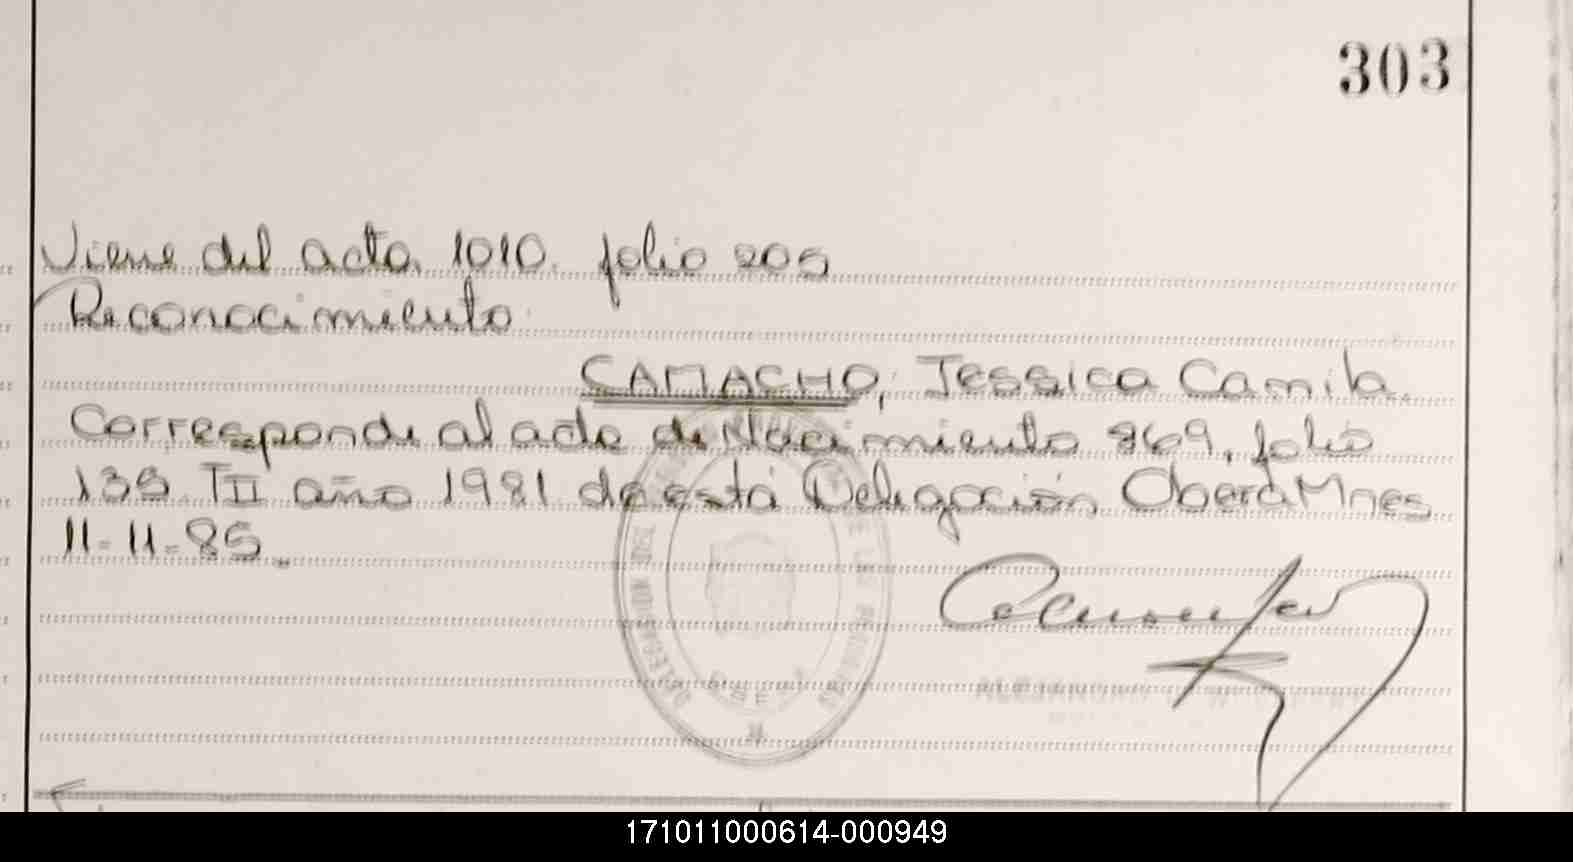 303
Viene del acta 1010. folio 205
Reconocimiento
CAMACHO, Jessica Camila.
Corresponde al acta de Nacimiento 869, folio
135 TII año 1981 de esta Delegación Oberá Mnes
11-11-85.
171011000614-000949